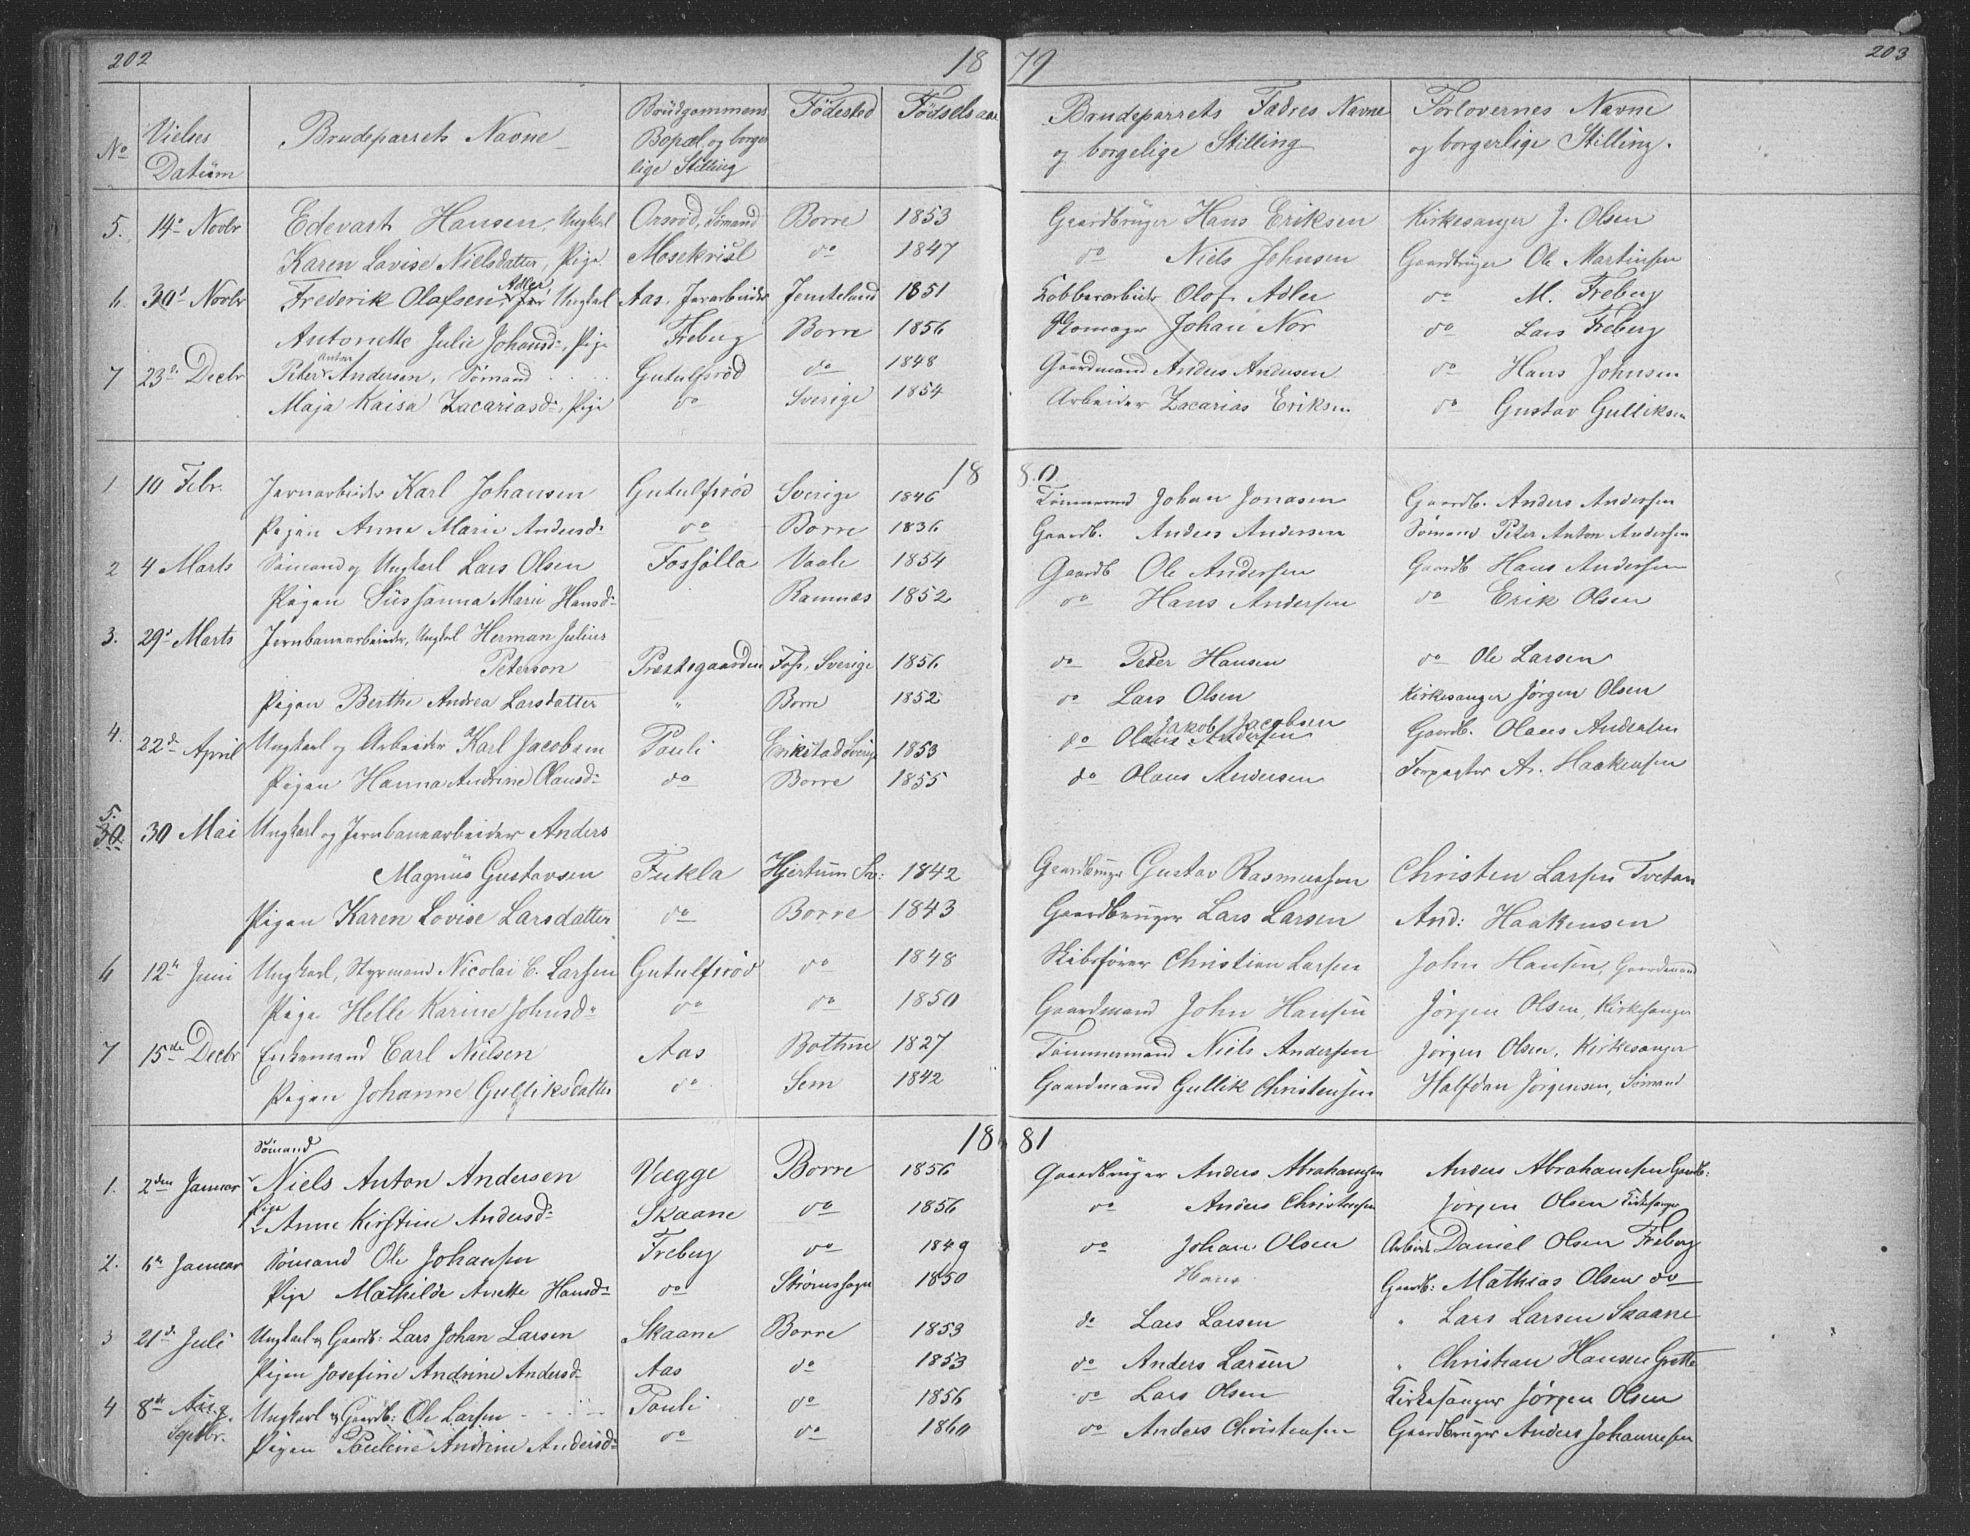 202 18 79 203
No Vielses Datum Brudeparrets Navne Brudgommens Bopæl og borgerlige Stilling Fødested Fødselsaar Brudeparrets Fadres Navne og borgelige Stilling Forlovernes Navne og borgerlige Stilling.
5. 14de Novbr Edevart Hansen, Ungkarl Orsröd, Sømand Borre 1853 Gaardbruger Hans Eriksen Kirkesanger J. Olsen
Karen Lovise Nielsdatter, Pige do 1847 do Niels Johnsen Gaardbruger Ole Martinsen
6. Novbr Frederik Olafsen Adler Ungkarl Aas, Jernarbeider 1851 Kobberarbeider Olof Adler do M. Freberg
Antonette Julie Johansd:, Pige Freberg Borre 1856 Skomager Johan Nor do Lars Freberg
7 23de Decbr Peter Anton Andersen, Sømand Gutulfsröd do 1848 Gaardmand Anders Andersen do Hans Johnsen
Maja Kaisa Zacariasd:, Pige do Sverige 1854 Arbeider Zacarias Eriksen do Gustav Gulliksen
18 80
1 10 Febr. Jernarbeider Karl Johansen Gutulfsröd Sverige 1846 Johan Jonasen Gaardb. Anders Andersen
Pigen Anne Marie Andersd: do Borre 1836 Gaardb. Anders Andersen Sømand Peter Anton Andersen
2 4 Marts Sømand og Ungkarl Lars Olsen Vaale 1854 Gaardb Ole Andersen Gaardb Hans Andersen
Pigen Süssanna Marie Hansd: Ramnæs 1852 do Hans Andersen do Erik Olsen
3. 29de Marts Jernbanearbeider, Ungkarl Herman Julius
Peterson Præstegaarden Foss, Sverige 1856 do Peter Hansen do Ole Larsen
Pigen Berthe Andrea Larsdatter " Borre 1852 do Lars Olsen Kirkesanger Jørgen Olsen
4. 22de April Ungkarl og Arbeider Karl Jacobsen Pauli Erikstad Sverige 1853 do Jakob Jacobsen Gaardb. Olaus Andersen
Pigen Hanna Andrine Olausd: do Borre 1855 do Olaus Andersen Forpagter A. Haakensen
5. 30 30 Mai Ungkarl og Jernbanearbeider Anders
Magnüs Gustavsen Fukla Hjertum Sv: 1842 Gaardbruger Gustav Rasmussen Christen Larsen Tvetan
Pigen Karen Lovise Larsdatter do Borre 1843 Gaardbruger Lars Larsen And: Haakensen
6 12te Juni Ungkarl, Styrmand Nicolai C. Larsen Gutulfsröd do 1848 Skibsfører Christian Larsen John Hansen, Gaardmand
Pige Helle Karine Johnsd: do do 1850 Gaardmand John Hansen Jørgen Olsen, Kirkesanger
7 15de Decbr Enkemand Carl Nielsen Aas Bothne 1827 Tømmermand Niels Andersen Jørgen Olsen, Kirkesanger
Pigen Johanne Gulliksdatter do Sem 1842 Gaardmand Gullik Christensen Halfdan Jørgensen, Sømand
18 81
1. 2den Januar Sømand Niels Anton Andersen Vægge Borre 1856 Gaardbruger Anders Abrahamsen Anders Abrahamsen Gaardb:
Pige Anne Kirstine Andersd: Skaane do 1856 do Anders Christensen Jørgen Olsen Kirkesanger
2. 6te Januar Sømand Ole Johansen Freberg do 1849 do Johan Olsen Arbeider Daniel Olsen Freberg
Pige Mathilde Anette Hansd: do Strømssogn 1850 Hans Gaardb: Mathias Olsen do
3 21de Juli Ungkarl og Gaardb: Lars Johan Larsen Skaane Borre 1853 do Lars Larsen " Lars Larsen Skaane
Pigen Josefine Andrine Andersd: Aas do 1853 do Anders Larsen " Christian Hansen Grette
4 8de Aug. Septbr. Ungkarl og Gaardb: Ole Larsen Pauli do 1856 do Lars Olsen Kirkesanger Jørgen Olsen
Pigen Pauline Andrine Andersd: do do 1860 do Anders Christensen Gaardbruger Anders Johannesen